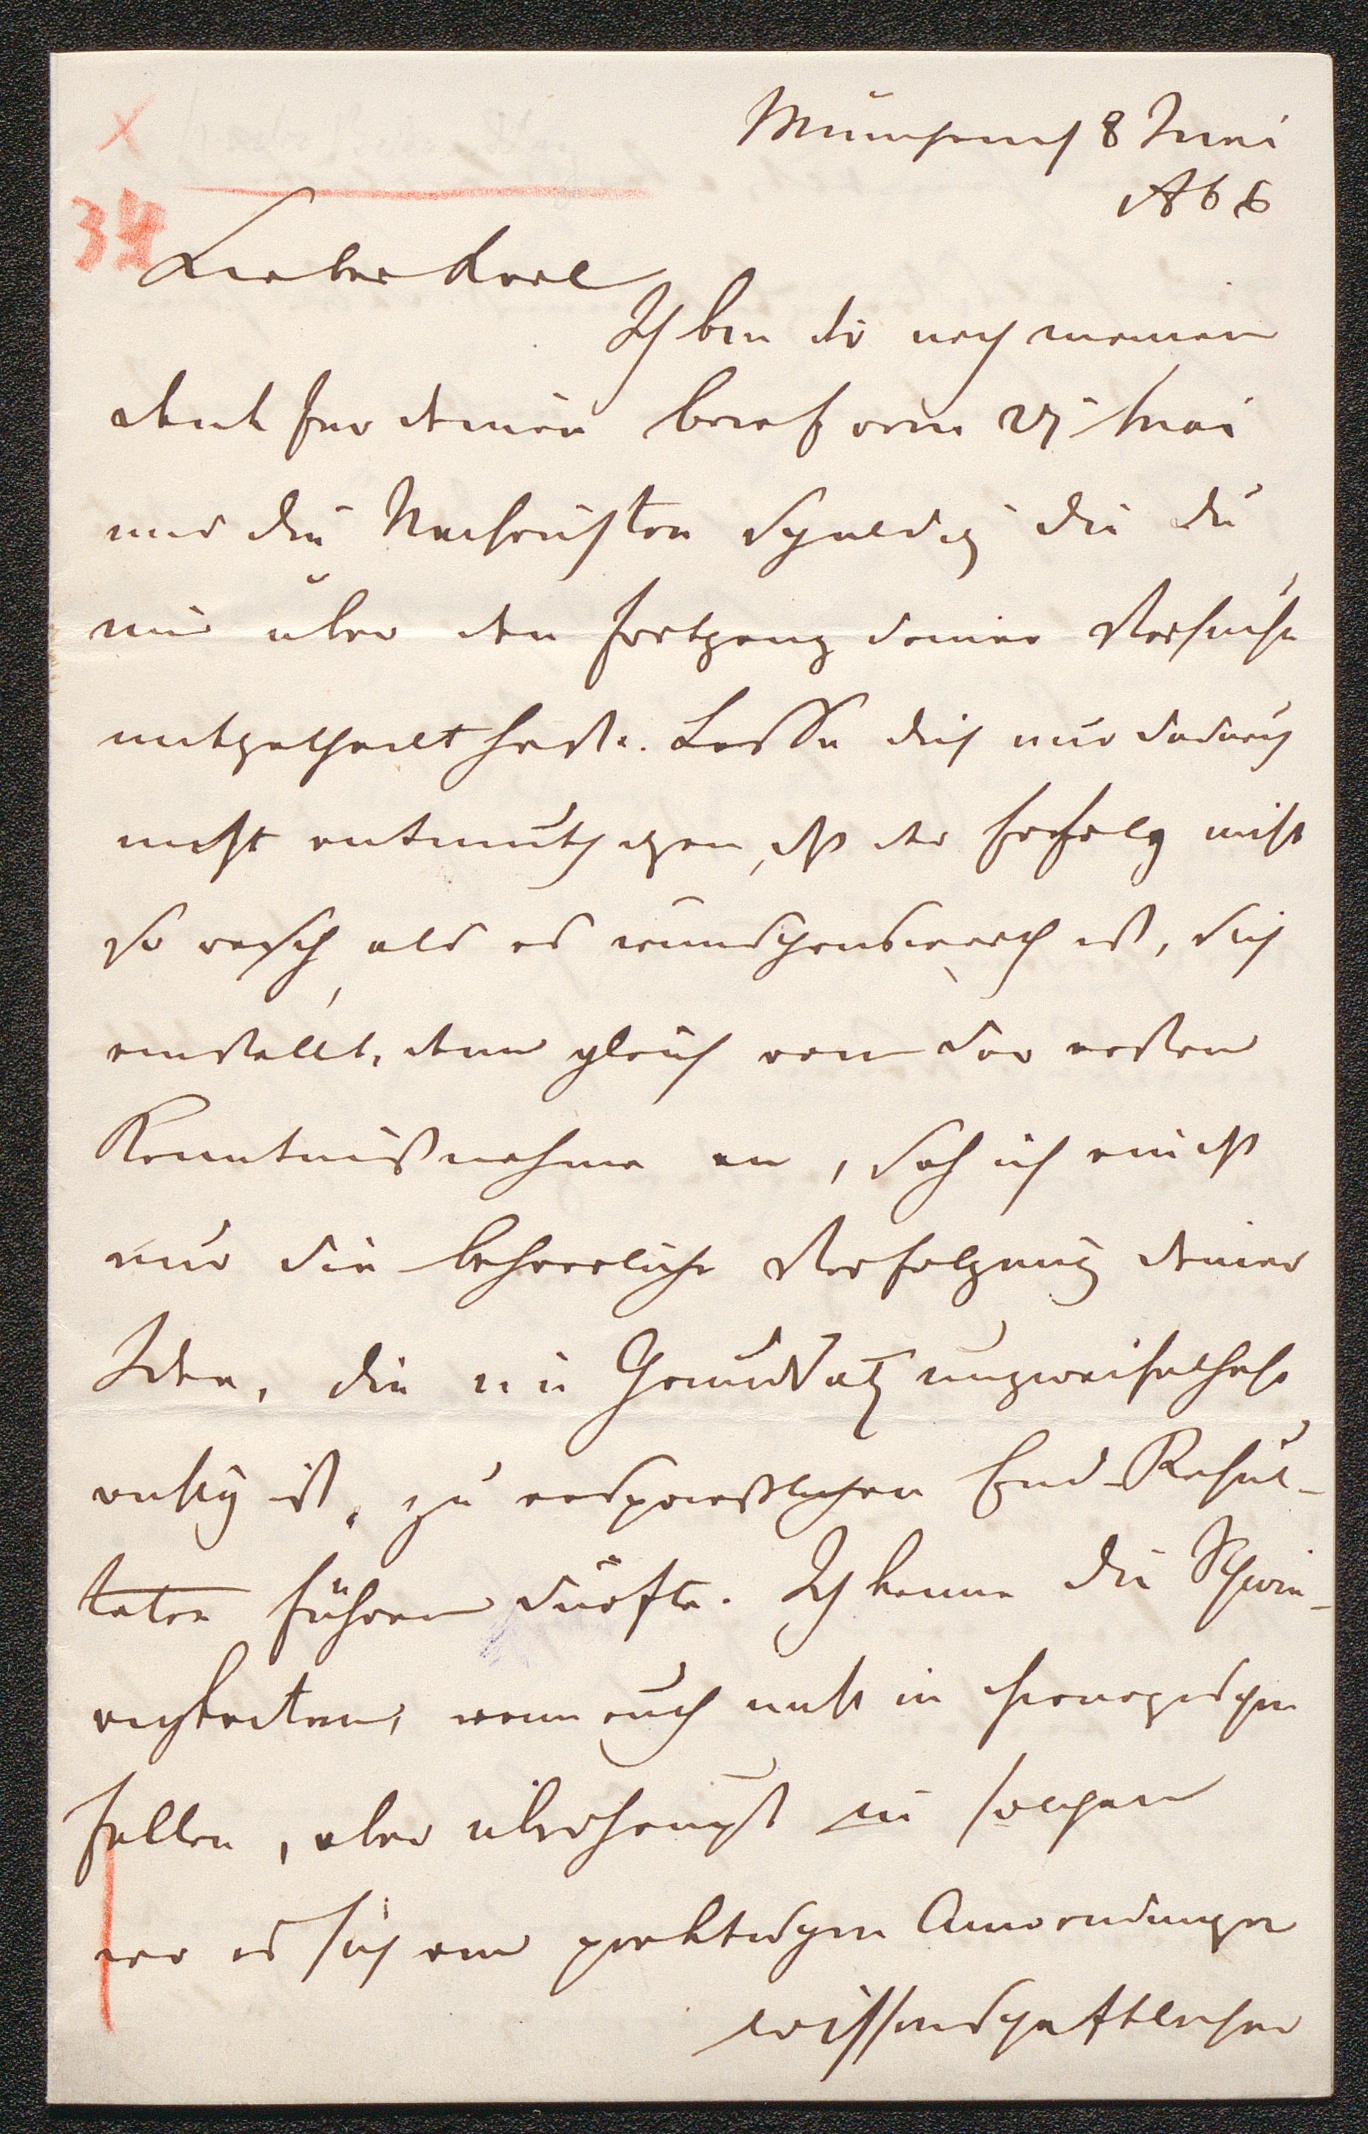 X
München 8 Juni
34
Lieber Karl
Ich bin dir noch meinen
Dank für deinen Brief vom 27 Mai
und die Nachrichten schuldig die du
mir über den Fortgang deiner Versuche
mitgetheilt hast. Lasse dich nur dadurch
nicht entmuthigen, daß der Erfolg nicht
so rasch, als es wünschenswerth ist, sich
einstellt, denn gleich von der ersten
Kenntnißnahme an, sah ich ein daß
nur die beharrliche Verfolgung deiner
Idee, die im Grundsatz unzweifelhaft
richtig ist, zu ersprießlichen End-Resul-
taten führen dürfte. Ich kenne die Schwie-
rigkeiten, wenn auch nicht in chirurgischen
Fällen, aber überhaupt in solchen
wo es sich um praktischen Anwendungen
wissenschaftlicher